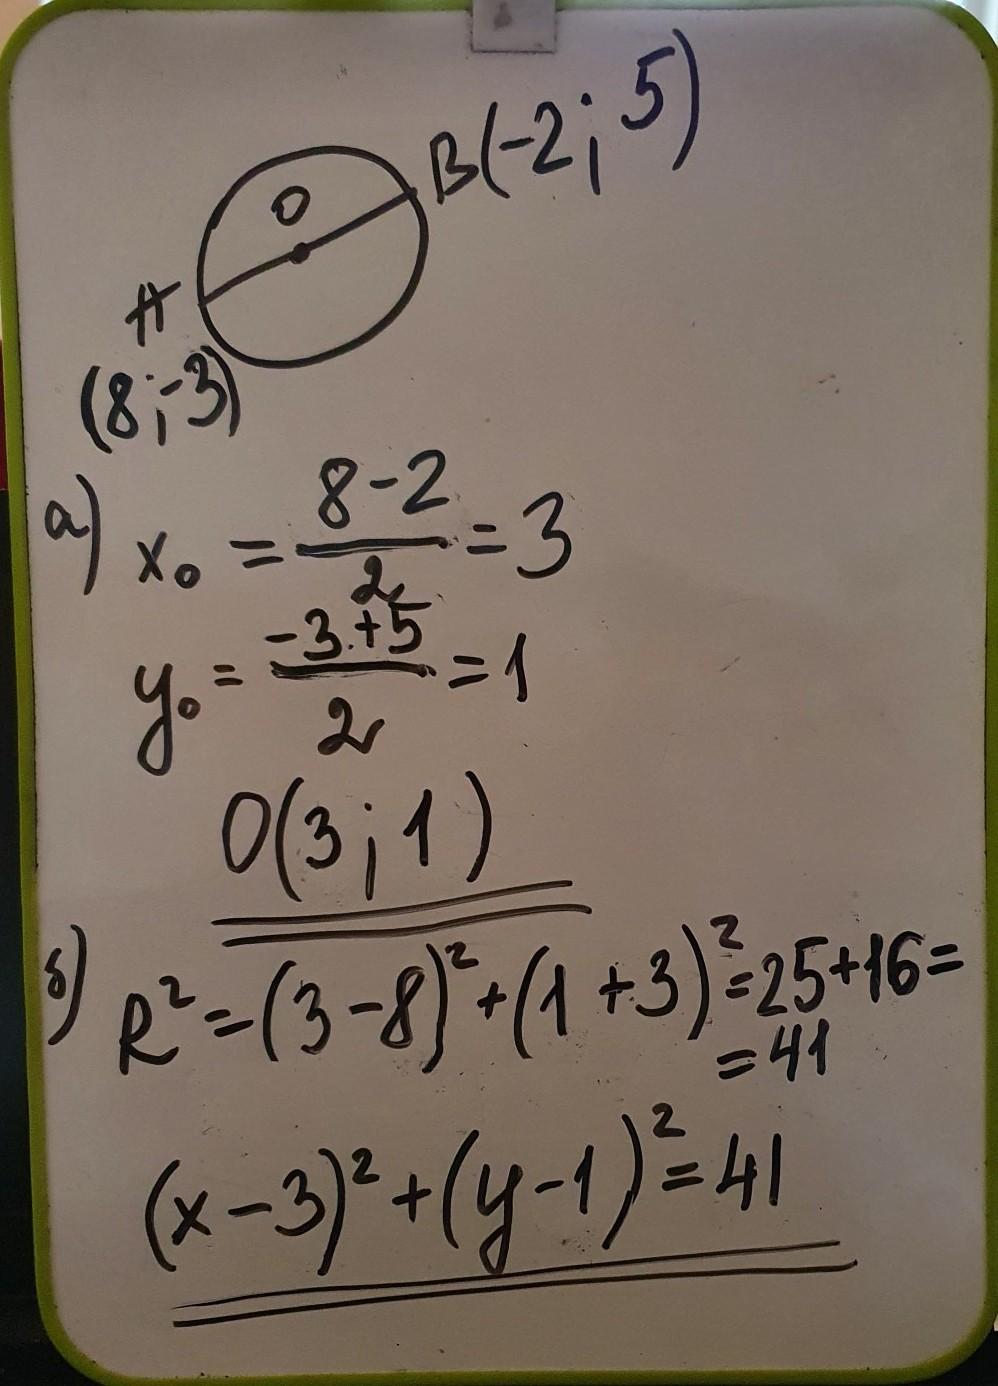 B(-2; 5)
O
A
(8; -3)
а) x₀ = (8-2)/2 = 3
y₀ = (-3+5)/2 = 1
O(3; 1)
б) R² = (3-8)² + (1+3)² = 25+16=
= 41
(x-3)² + (y-1)² = 41